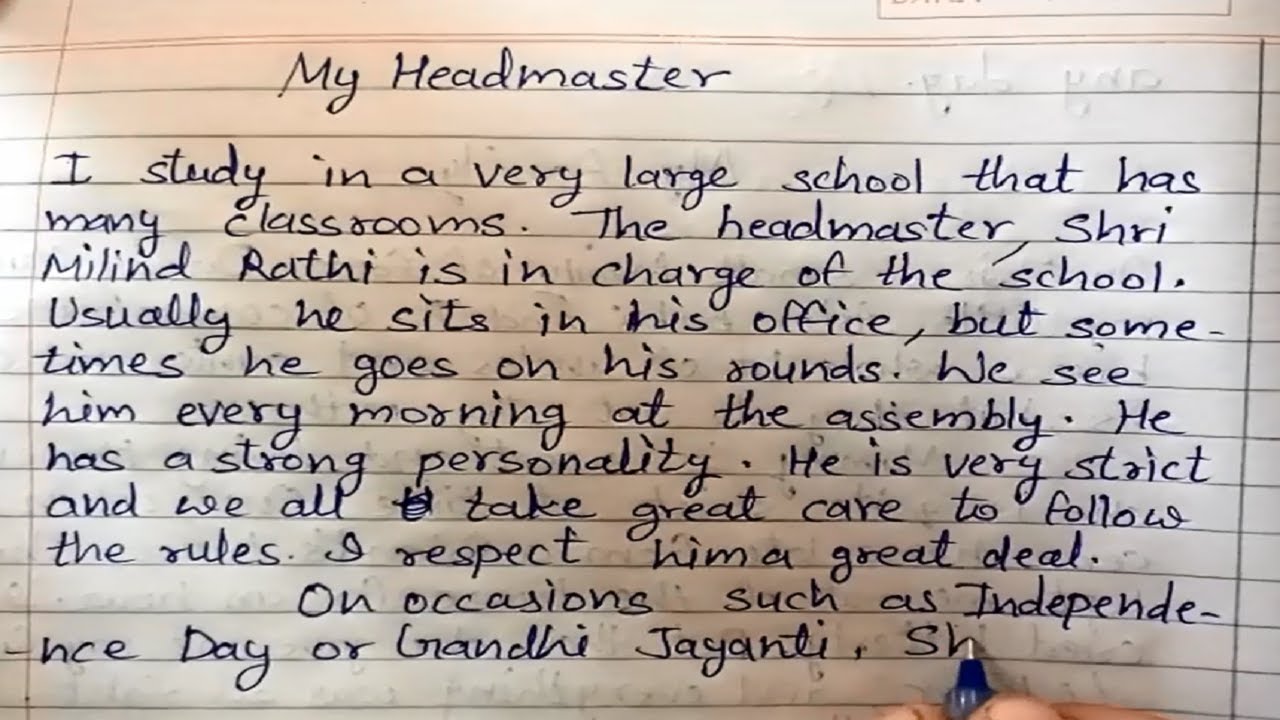 My Headmaster
I study in a very large school that has
many classrooms. The headmaster, Shri
Milind Rathi is in charge of the school.
Usually he sits in his office, but some-
times he goes on his rounds. We see
him every morning at the assembly. He
has a strong personality. He is very strict
and we all take great care to follow
the rules. I respect him a great deal.
On occasions such as Independe-
-nce Day or Gandhi Jayanti, Sh